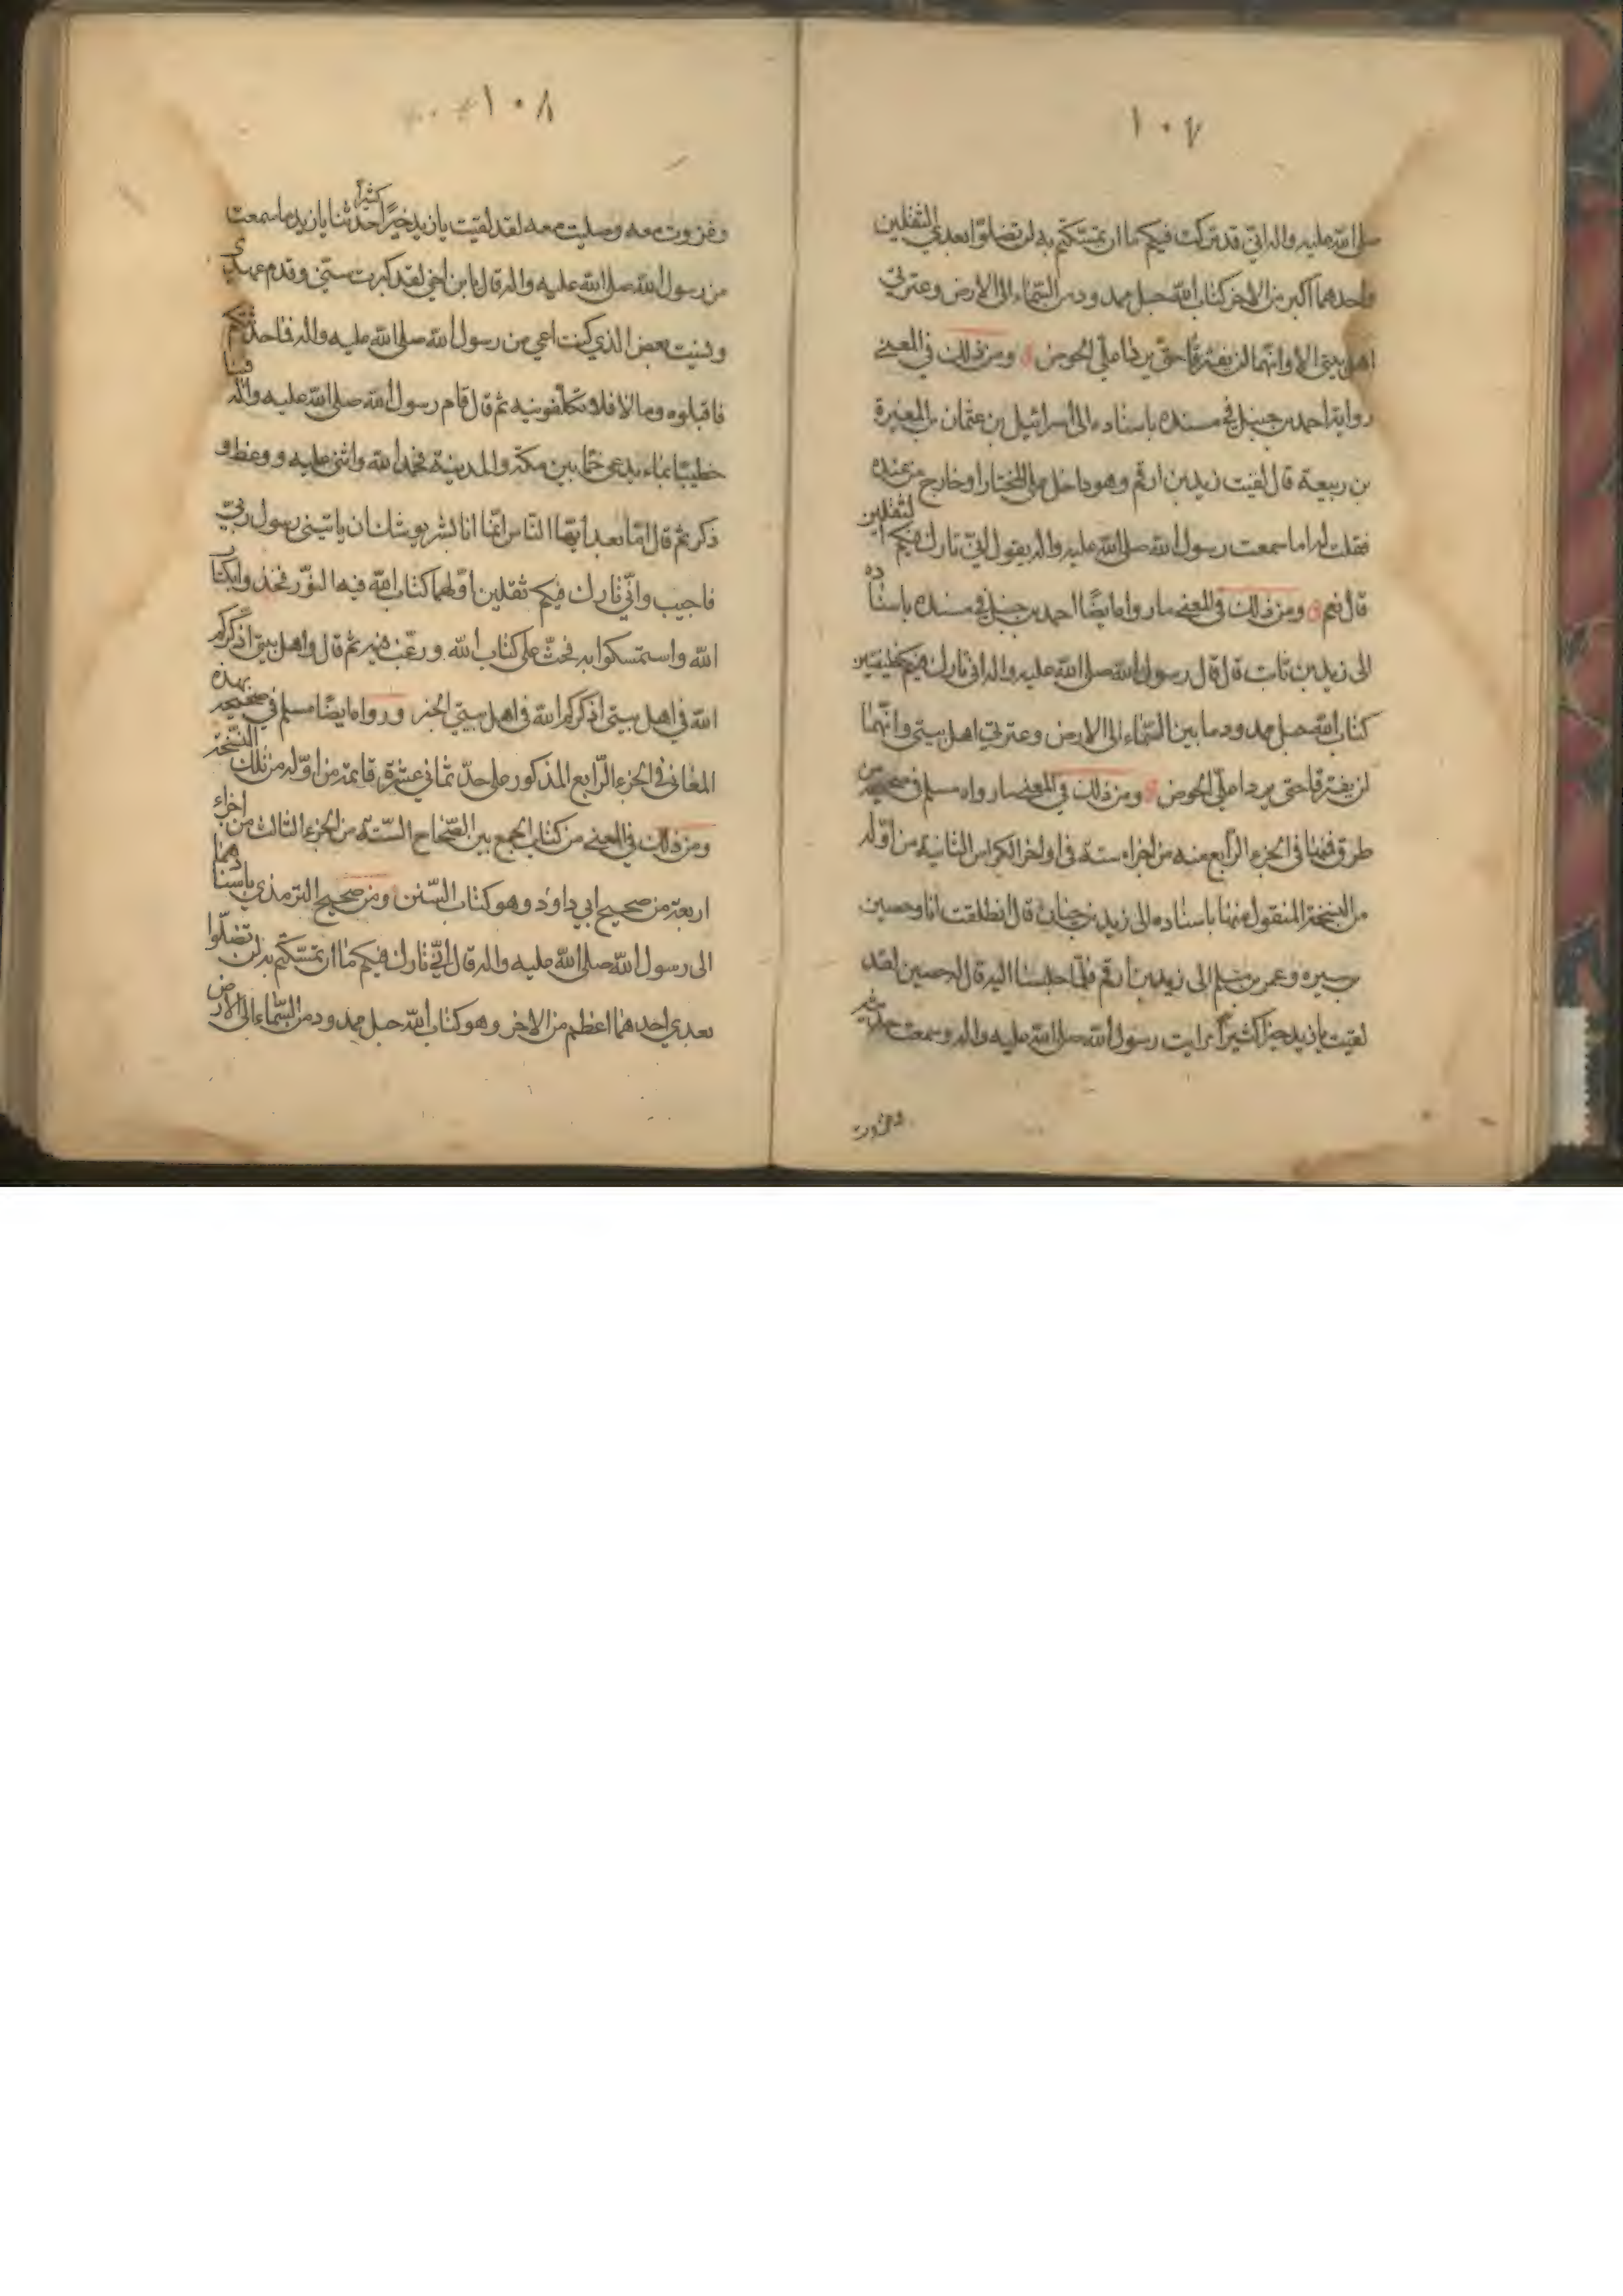 ١٠٧
صلى الله عليه واله اني قد تركت فيكم ما ان تمسكتم به لن تضلوا بعدي الثقلين
واحدهما اكبر من الاخر كتاب الله حبل ممدود من السماء الى الارض وعترتي
اهل بيتي الا وانهما لن يفترقا حتى يردا علي الحوض ومن ذلك في المعنى
رواية احمد بن حنبل في مسنده باسناده الى اسرائيل بن عثمان بن المغيرة
بن ربيعة قال لقيت زيد بن ارقم وهو داخل على المختار او خارج من عنده
فقلت له اما سمعت رسول الله صلى الله عليه واله يقول اني تارك فيكم الثقلين
قال نعم ومن ذلك في المعنى ما رواه ايضًا احمد بن حنبل في مسنده باسناده
الى زيد بن ثابت قال قال رسول الله صلى الله عليه واله اني تارك فيكم خليفتين
كتاب الله حبل ممدود ما بين السماء الى الارض وعترتي اهل بيتي وانهما
لن يفترقا حتى يردا علي الحوض ومن ذلك في المعنى ما رواه مسلم في صحيحه من
طرق فمنها في الجزء الرابع منه من اجزاء ستة في اواخر الكراس الثانية من اوله
من النسخة المنقول منها باسناده الى زيد بن حيان قال انطلقت انا وحصين
بن سبره وعمر بن مسلم الى زيد بن أرقم فلما جلسنا اليه قال له حصين لقد
لقيت يا زيد خيرًا كثيرًا رايت رسول الله صلى الله عليه واله وسمعت حديثه
وغزوت
١٠٨
وغزوت معه وصليت معه لقد لقيت يا زيد خيرًا كثيرًا حدثنا يا زيد ما سمعت
من رسول الله صلى الله عليه واله قال يا بن اخي لقد كبرت سني وقدم عهدي
ونسيت بعض الذي كنت اعي من رسول الله صلى الله عليه واله فما حدثتكم
فاقبلوه وما لا فلا تكلفونيه ثم قال قام رسول الله صلى الله عليه واله فينا
خطيبًا بماء يدعى خمًا بين مكة والمدينة فحمد الله واثنى عليه ووعظ و
ذكر ثم قال امّا بعد أيها الناس انما انا بشر يوشك ان ياتيني رسول ربي
فاجيب واني تارك فيكم ثقلين أولهما كتاب الله فيه الهدى النور فخذوا بكتاب
الله واستمسكوا به فحث على كتاب الله ورغب فيه ثم قال واهل بيتي اذكركم
الله في اهل بيتي اذكركم الله في اهل بيتي الخبر ورواه ايضًا مسلم في صحيحه بهذه
المعاني في الجزء الرابع المذكور على حد ثماني عشرة قائمة من اوله من تلك النسخة
ومن ذلك في المعنى من كتاب الجمع بين الصحاح الستة من الجزء الثالث من اجزاء
اربعة من صحيح ابي داود وهو كتاب السنن ومن صحيح الترمذي باسنادهما
الى رسول الله صلى الله عليه واله قال اني تارك فيكم ما ان تمسكتم به لن تضلوا
بعدي احدهما اعظم من الاخر وهو كتاب الله حبل ممدود من السماء الى الارض